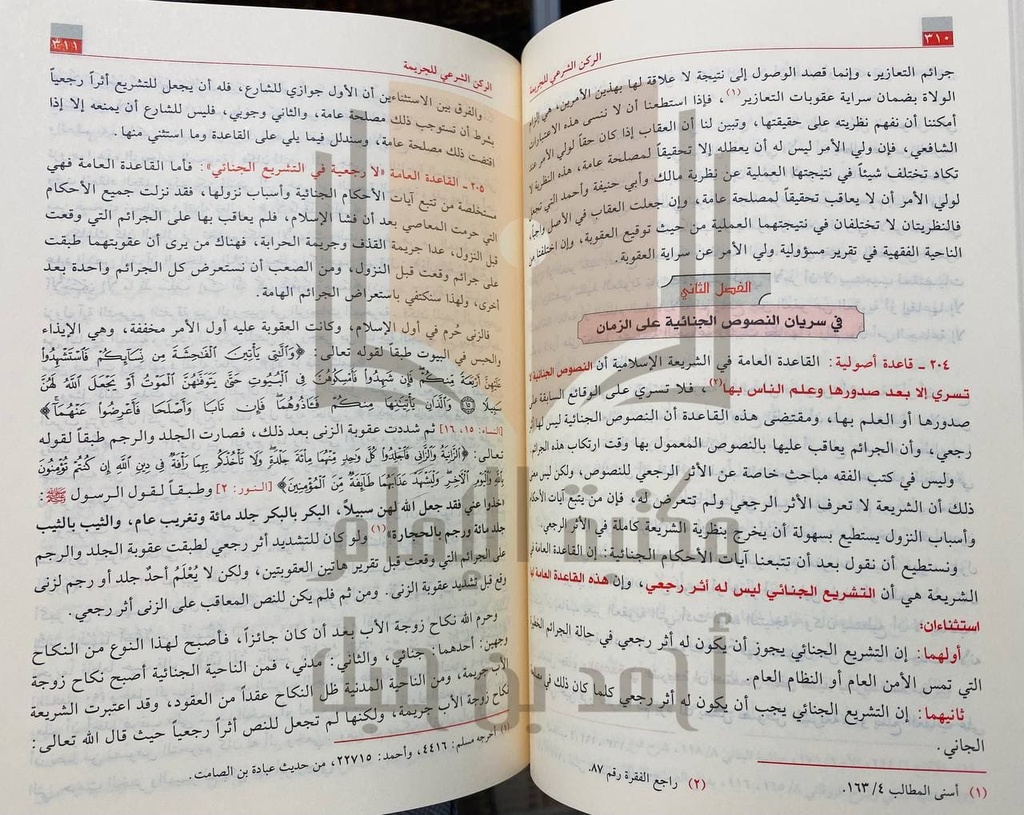 ٣١٠
الركن الشرعي للجريمة
جرائم التعازير، وإنما قصد الوصول إلى نتيجة لا علاقة لها بهذين الأمرين، هي إلزام
الولاة بضمان سراية عقوبات التعازير(١)، فإذا استطعنا أن لا ننسى هذه الاعتبارات
أمكننا أن نفهم نظريته على حقيقتها، وتبين لنا أن العقاب إذا كان حقاً لولي الأمر عند
الشافعي، فإن ولي الأمر ليس له أن يعطله إلا تحقيقاً لمصلحة عامة، هذه النظرية لا
تكاد تختلف شيئاً في نتيجتها العملية عن نظرية مالك وأبي حنيفة وأحمد التي تجعل
لولي الأمر أن لا يعاقب تحقيقاً لمصلحة عامة، وإن جعلت العقاب في الأصل واجباً،
فالنظريتان لا تختلفان في نتيجتهما العملية من حيث توقيع العقوبة، وإن اختلفتا من
الناحية الفقهية في تقرير مسؤولية ولي الأمر عن سراية العقوبة.
الفصل الثاني
في سريان النصوص الجنائية على الزمان
٢٠٤ - قاعدة أصولية: القاعدة العامة في الشريعة الإسلامية أن النصوص الجنائية لا
تسري إلا بعد صدورها وعلم الناس بها(٢)، فلا تسري على الوقائع السابقة على
صدورها أو العلم بها، ومقتضى هذه القاعدة أن النصوص الجنائية ليس لها أثر
رجعي، وأن الجرائم يعاقب عليها بالنصوص المعمول بها وقت ارتكاب هذه الجرائم.
وليس في كتب الفقه مباحث خاصة عن الأثر الرجعي للنصوص، ولكن ليس معنى
ذلك أن الشريعة لا تعرف الأثر الرجعي ولم تتعرض له، فإن من يتتبع آيات الأحكام
وأسباب النزول يستطيع بسهولة أن يخرج بنظرية الشريعة كاملة في الأثر الرجعي.
ونستطيع أن نقول بعد أن تتبعنا آيات الأحكام الجنائية: إن القاعدة العامة في
الشريعة هي أن التشريع الجنائي ليس له أثر رجعي، وإن هذه القاعدة العامة لها
استثناءان:
أولهما: إن التشريع الجنائي يجوز أن يكون له أثر رجعي في حالة الجرائم الخطيرة
التي تمس الأمن العام أو النظام العام.
ثانيهما: إن التشريع الجنائي يجب أن يكون له أثر رجعي كلما كان ذلك في مصلحة
الجاني.
(١) أسنى المطالب ٤/ ١٦٣. (٢) راجع الفقرة رقم ٨٧.
٣١١
الركن الشرعي للجريمة
والفرق بين الاستثناءين أن الأول جوازي للشارع، فله أن يجعل للتشريع أثراً رجعياً
بشرط أن تستوجب ذلك مصلحة عامة، والثاني وجوبي، فليس للشارع أن يمنعه إلا إذا
اقتضت ذلك مصلحة عامة، وسندلل فيما يلي على القاعدة وما استثني منها.
٢٠٥ - القاعدة العامة «لا رجعية في التشريع الجنائي»: فأما القاعدة العامة فهي
مستخلصة من تتبع آيات الأحكام الجنائية وأسباب نزولها، فقد نزلت جميع الأحكام
التي حرمت المعاصي بعد أن فشا الإسلام، فلم يعاقب بها على الجرائم التي وقعت
قبل النزول، عدا جريمة القذف وجريمة الحرابة، فهناك من يرى أن عقوبتهما طبقت
على جرائم وقعت قبل النزول، ومن الصعب أن نستعرض كل الجرائم واحدة بعد
أخرى، ولهذا سنكتفي باستعراض الجرائم الهامة.
فالزنى حُرم في أول الإسلام، وكانت العقوبة عليه أول الأمر مخففة، وهي الإيذاء
والحبس في البيوت طبقاً لقوله تعالى: ﴿وَالَّتِي يَأْتِينَ الْفَاحِشَةَ مِن نِّسَائِكُمْ فَاسْتَشْهِدُوا
عَلَيْهِنَّ أَرْبَعَةً مِّنكُمْ فَإِن شَهِدُوا فَأَمْسِكُوهُنَّ فِي الْبُيُوتِ حَتَّى يَتَوَفَّاهُنَّ الْمَوْتُ أَوْ يَجْعَلَ اللَّهُ لَهُنَّ
سَبِيلًا ١٥ وَالَّذَانِ يَأْتِيَانِهَا مِنكُمْ فَآذُوهُمَا فَإِن تَابَا وَأَصْلَحَا فَأَعْرِضُوا عَنْهُمَا﴾
[النساء: ١٥، ١٦] ثم شددت عقوبة الزنى بعد ذلك، فصارت الجلد والرجم طبقاً لقوله
تعالى: ﴿الزَّانِيَةُ وَالزَّانِي فَاجْلِدُوا كُلَّ وَاحِدٍ مِّنْهُمَا مِائَةَ جَلْدَةٍ وَلَا تَأْخُذْكُم بِهِمَا رَأْفَةٌ فِي دِينِ اللَّهِ إِن كُنتُمْ تُؤْمِنُونَ
بِاللَّهِ وَالْيَوْمِ الْآخِرِ وَلْيَشْهَدْ عَذَابَهُمَا طَائِفَةٌ مِّنَ الْمُؤْمِنِينَ﴾ [النور: ٢] وطبقاً لقول الرسول ﷺ:
«خذوا عني فقد جعل الله لهن سبيلاً، البكر بالبكر جلد مائة وتغريب عام، والثيب بالثيب
جلد مائة ورجم بالحجارة»(١) ولو كان للتشديد أثر رجعي لطبقت عقوبة الجلد والرجم
على الجرائم التي وقعت قبل تقرير هاتين العقوبتين، ولكن لا يُعْلَمُ أحدٌ جلد أو رجم لزنى
وقع قبل تشديد عقوبة الزنى. ومن ثم فلم يكن للنص المعاقب على الزنى أثر رجعي.
وحرم الله نكاح زوجة الأب بعد أن كان جائزاً، فأصبح لهذا النوع من النكاح
وجهين: أحدهما: جنائي، والثاني: مدني، فمن الناحية الجنائية أصبح نكاح زوجة
الأب جريمة، ومن الناحية المدنية ظل النكاح عقداً من العقود، وقد اعتبرت الشريعة
نكاح زوجة الأب جريمة، ولكنها لم تجعل للنص أثراً رجعياً حيث قال الله تعالى:
(١) أخرجه مسلم: ٤٤١٦، وأحمد: ٢٢٧١٥، من حديث عبادة بن الصامت.